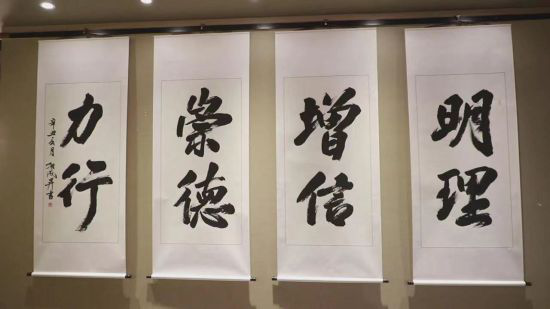 明理
增信
崇德
力行
辛丑五月